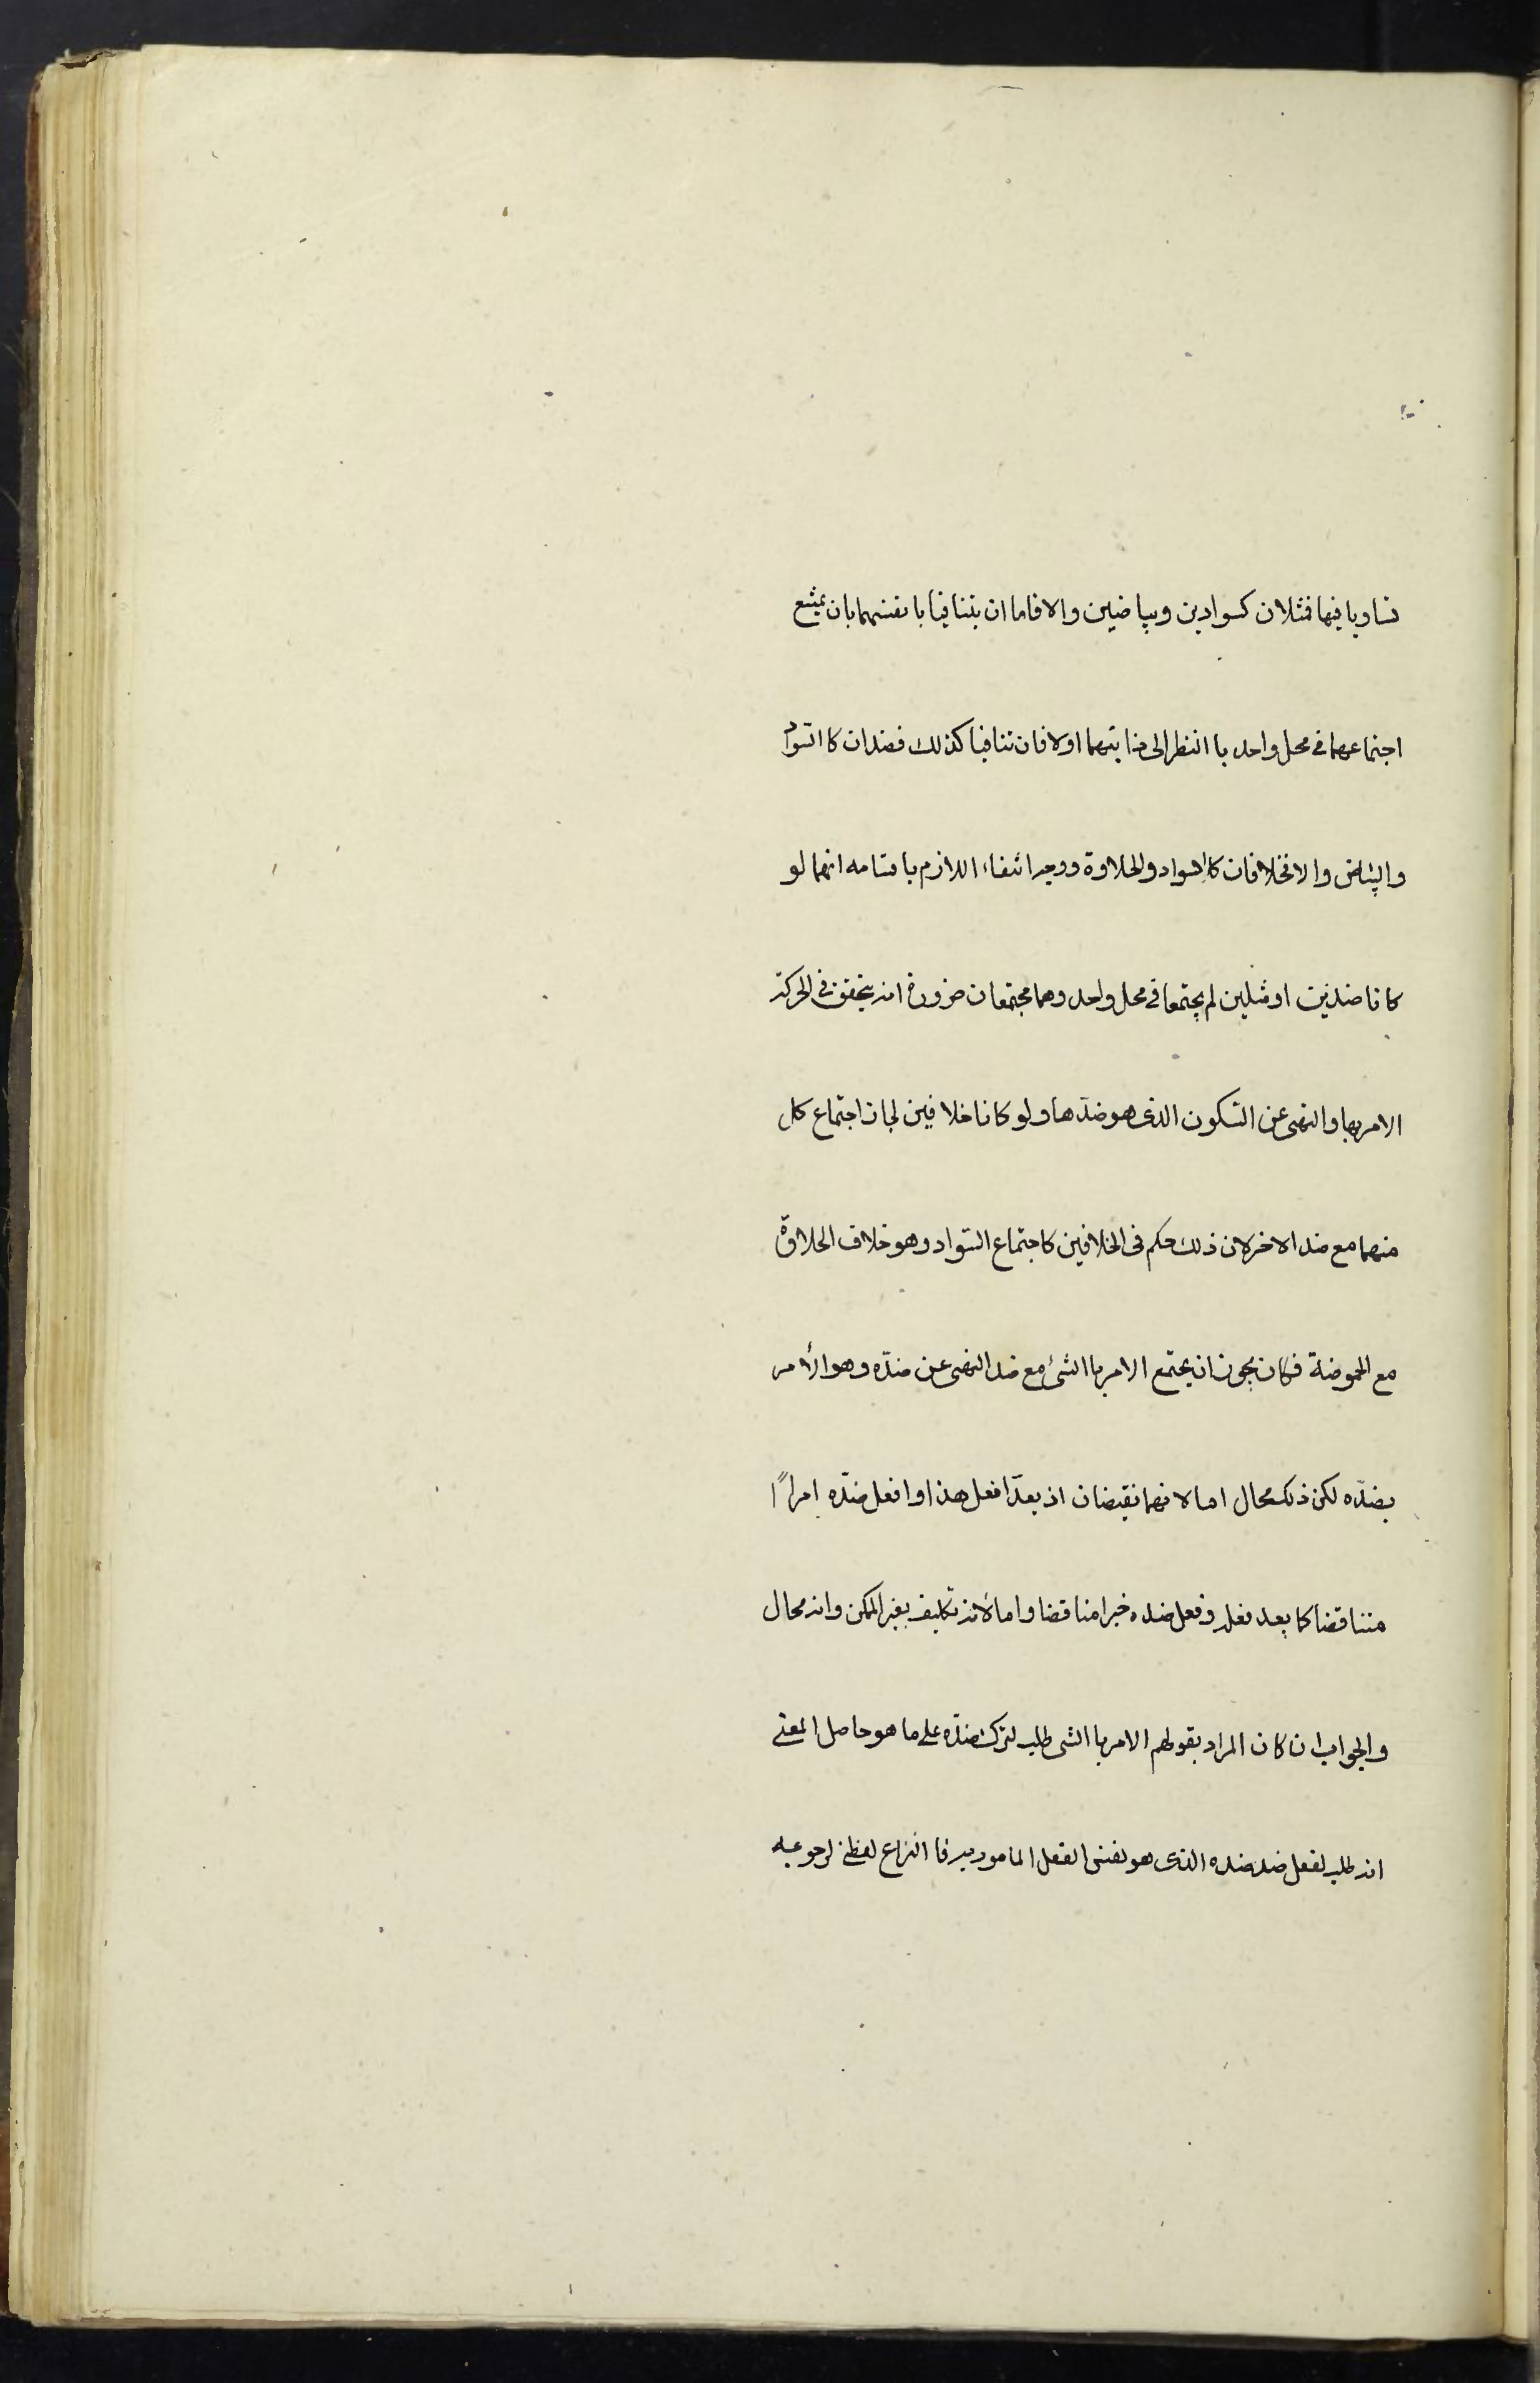 تساويا فيها فمثلان كسوادين وبياضين والا فاما ان يتنافيا بانفسهما بان يمتنع
اجتماعهما في محل واحد با النظر الى ذاتيهما اولا فان تنافيا كذلك فضدان كا السواد
والبياض والا فخلافان كالسواد والحلاوة ووجه انتفاء اللازم باقسامه انهما لو
كانا ضدين او مثلين لم يجتمعا في محل واحد وهما مجتمعان ضرورة انه يتحقق في الحركة
الامر بها والنهى عن السكون الذى هو ضدّها ولو كانا خلافين لجاز اجتماع كل
منهما مع ضد الاخر لان ذلك حكم فى الخلافين كاجتماع السواد وهو خلاف الحلاوة
مع الحموضة فكان يجوز ان يجتمع الامر با الشئ مع ضد النهى عن ضدّه وهو الأمر
بضدّه لكن ذلك محال اما لانهما نقيضان اذ يعدّ افعل هذا وافعل ضدّه امرًا
متناقضا كما يعد فعله وفعل ضده خبرا مناقضا واما لأنه تكليف بغير الممكن وانه محال
والجواب ان كان المراد بقولهم الامر با الشى طلب لترك ضدّه على ما هو حاصل المعنى
انه طلب لفعل ضد ضده الذى هو نفس الفعل المامور به فا النزاع لفظى لرجوعه